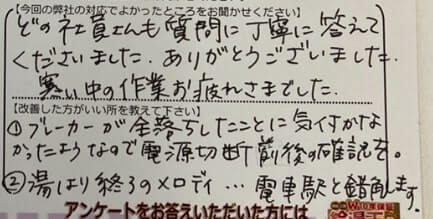 【今回の弊社の対応でよかったところをお聞かせください】
どの社員さんも質問に丁寧に答えて
くださいました。ありがとうございました。
寒い中の作業お疲れさまでした。
【改善した方がいい所を教えて下さい】
①ブレーカーが全落ちしたことに気付かな
かったようなので電源切断前後の確認を。
②湯はり終了のメロディ…電車駅と錯角します。
アンケートをお答えいただいた方には